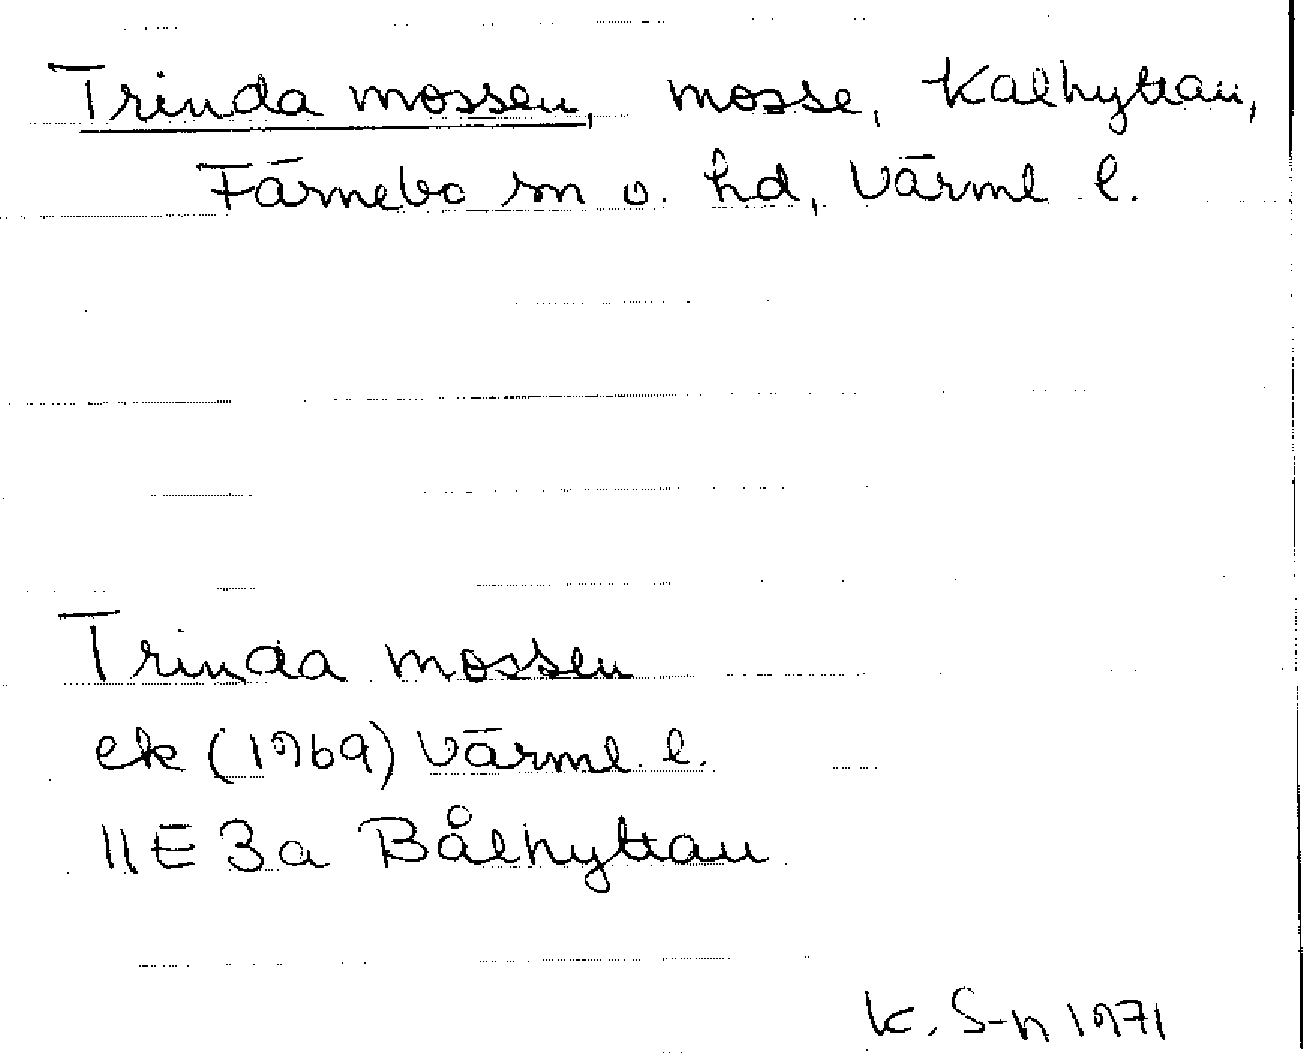 Trinda mossen, mosse, Kalhyttan,
Färnebo sn o. hd, Värml l.
Trinda mossen
ek (1969) Värml. l.
11E 3a Bålhyttan
K. S-n 1971